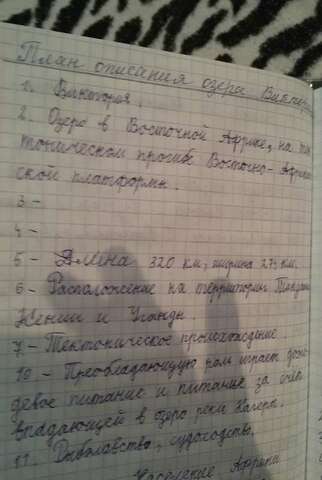 План описания озера Виктор
1. Виктория.
2. Озеро в Восточной Африке, на тек
тоническом прогибе Восточно-Африкан
ской платформы.
3 -
4 -
5 - Длина 320 км, ширина 275 км.
6 - Расположение на территории Танзани
Кении и Уганды
7 - Тектоническое происхождение.
10 - Преобладающую роль играет дож
девое питание и питание за счёт
впадающей в озеро реки Кагера.
11. Рыболовство, судоходство.
Население Африки